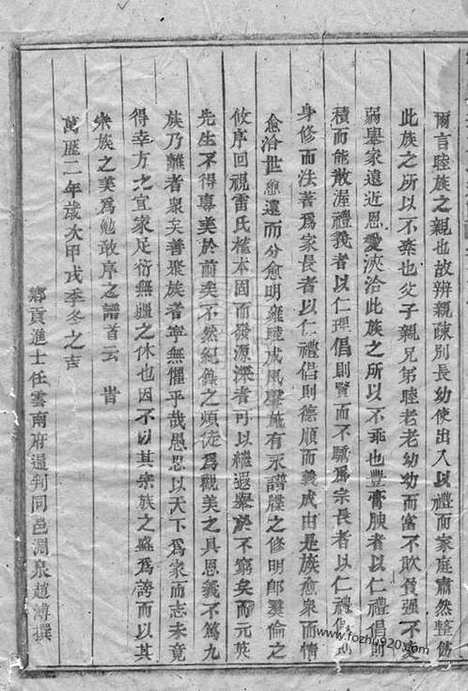 爾言睦族之親也故辨親疎別長幼使出入以禮而家庭肅然整飭
此族之所以不紊也父子親兄弟睦老老幼幼而富不欺貧強不凌
弱舉家遠近恩愛浹洽此族之所以不乖也豐膏腴者以仁禮倡則
積而能散渥禮義者以仁理倡則賢而不驕為宗長者以仁禮倡則
身修而法著為家長者以仁禮倡則德順而義成由是族愈衆而情
愈洽世愈遠而分愈明雍睦成風 施有永譜牒之修明郎 倫之
攸序回視雷氏根本固而發源深者可以繼遐 於不窮矣而元英
先生不得專美於前矣不然紀錄之煩徒為觀美之具恩義不篤九
族乃離者衆矣善聚族者寧無懼乎哉愚思以天下為家而志未竟
得幸方之宜家足衍無疆之休也因不以其宗族之盛為誇而以其
宗族之美為勉敢序之譜首云 旹
萬曆二年歲次甲戌季冬之吉
鄉貢進士任雲南府通判同邑淵泉趙溥撰
www.fozhu920.com